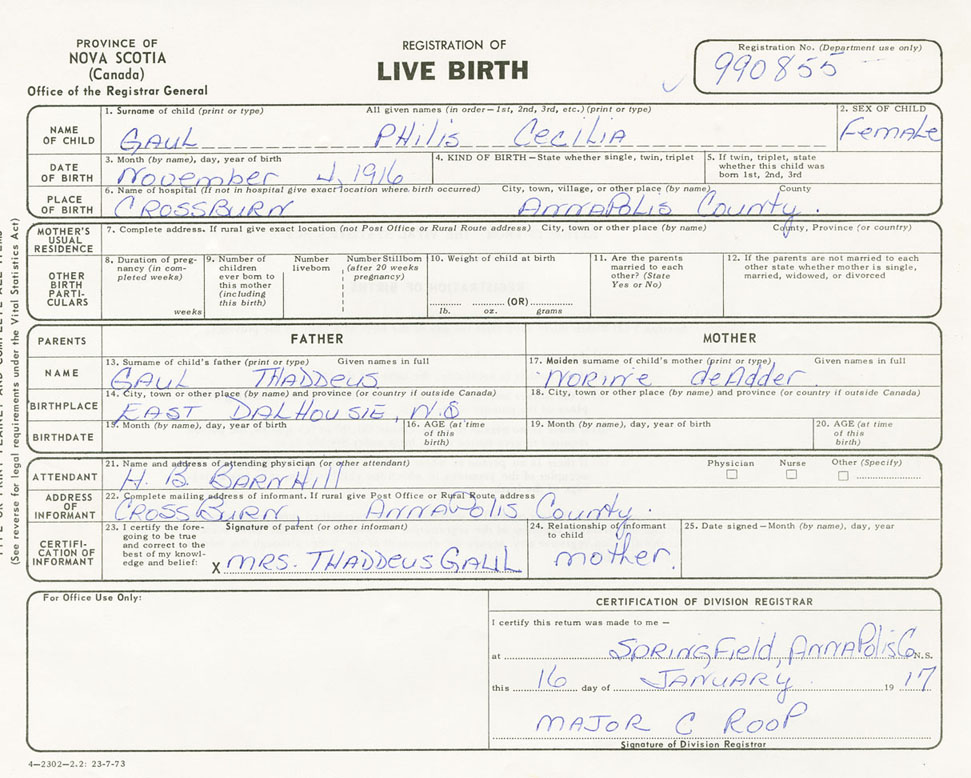 PROVINCE OF
NOVA SCOTIA
(Canada)
Office of the Registrar General
REGISTRATION OF
LIVE BIRTH
Registration No. (Department use only)
990855
NAME OF CHILD
1. Surname of child (print or type) All given names (in order—1st, 2nd, 3rd, etc.) (print or type)
GAUL PHILIS CECILIA
2. SEX OF CHILD
Female
DATE OF BIRTH
3. Month (by name), day, year of birth
November 4, 1916
4. KIND OF BIRTH—State whether single, twin, triplet
5. If twin, triplet, state
whether this child was
born 1st, 2nd, 3rd
PLACE OF BIRTH
6. Name of hospital (If not in hospital give exact location where birth occurred) City, town, village, or other place (by name) County
CROSSBURN ANNAPOLIS County.
MOTHER'S
USUAL
RESIDENCE
7. Complete address. If rural give exact location (not Post Office or Rural Route address) City, town or other place (by name) County, Province (or country)
OTHER
BIRTH
PARTI-
CULARS
8. Duration of preg-
nancy (in com-
pleted weeks)
weeks
9. Number of
children
ever born to
this mother
(including
this birth)
Number
liveborn
Number Stillborn
(after 20 weeks
pregnancy)
10. Weight of child at birth
(OR)
lb. oz. grams
11. Are the parents
married to each
other? (State
Yes or No)
12. If the parents are not married to each
other state whether mother is single,
married, widowed, or divorced
PARENTS FATHER MOTHER
NAME
13. Surname of child's father (print or type) Given names in full
GAUL THADDEUS
17. Maiden surname of child's mother (print or type) Given names in full
NORINE deAdder
BIRTHPLACE
14. City, town or other place (by name) and province (or country if outside Canada)
EAST DALHOUSIE, N.S
18. City, town or other place (by name) and province (or country if outside Canada)
BIRTHDATE
15. Month (by name), day, year of birth
16. AGE (at time
of this
birth)
19. Month (by name), day, year of birth
20. AGE (at time
of this
birth)
ATTENDANT
21. Name and address of attending physician (or other attendant)
H. B. BARNHill
Physician Nurse Other (Specify)
ADDRESS
OF
INFORMANT
22. Complete mailing address of informant. If rural give Post Office or Rural Route address
CROSSBURN, ANNAPOLIS County.
CERTIFI-
CATION OF
INFORMANT
23. I certify the fore-
going to be true
and correct to the
best of my knowl-
edge and belief:
Signature of parent (or other informant)
X MRS. THADDEUS GAUL
24. Relationship of informant
to child
mother.
25. Date signed—Month (by name), day, year
For Office Use Only:
CERTIFICATION OF DIVISION REGISTRAR
I certify this return was made to me —
at SPRINGField, ANNAPolis Co N.S.
this 16 day of JANUARY 19 17
MAJOR C ROOP
Signature of Division Registrar
4—2302—2.2: 23-7-73
(See reverse for legal requirements under the Vital Statistics Act)